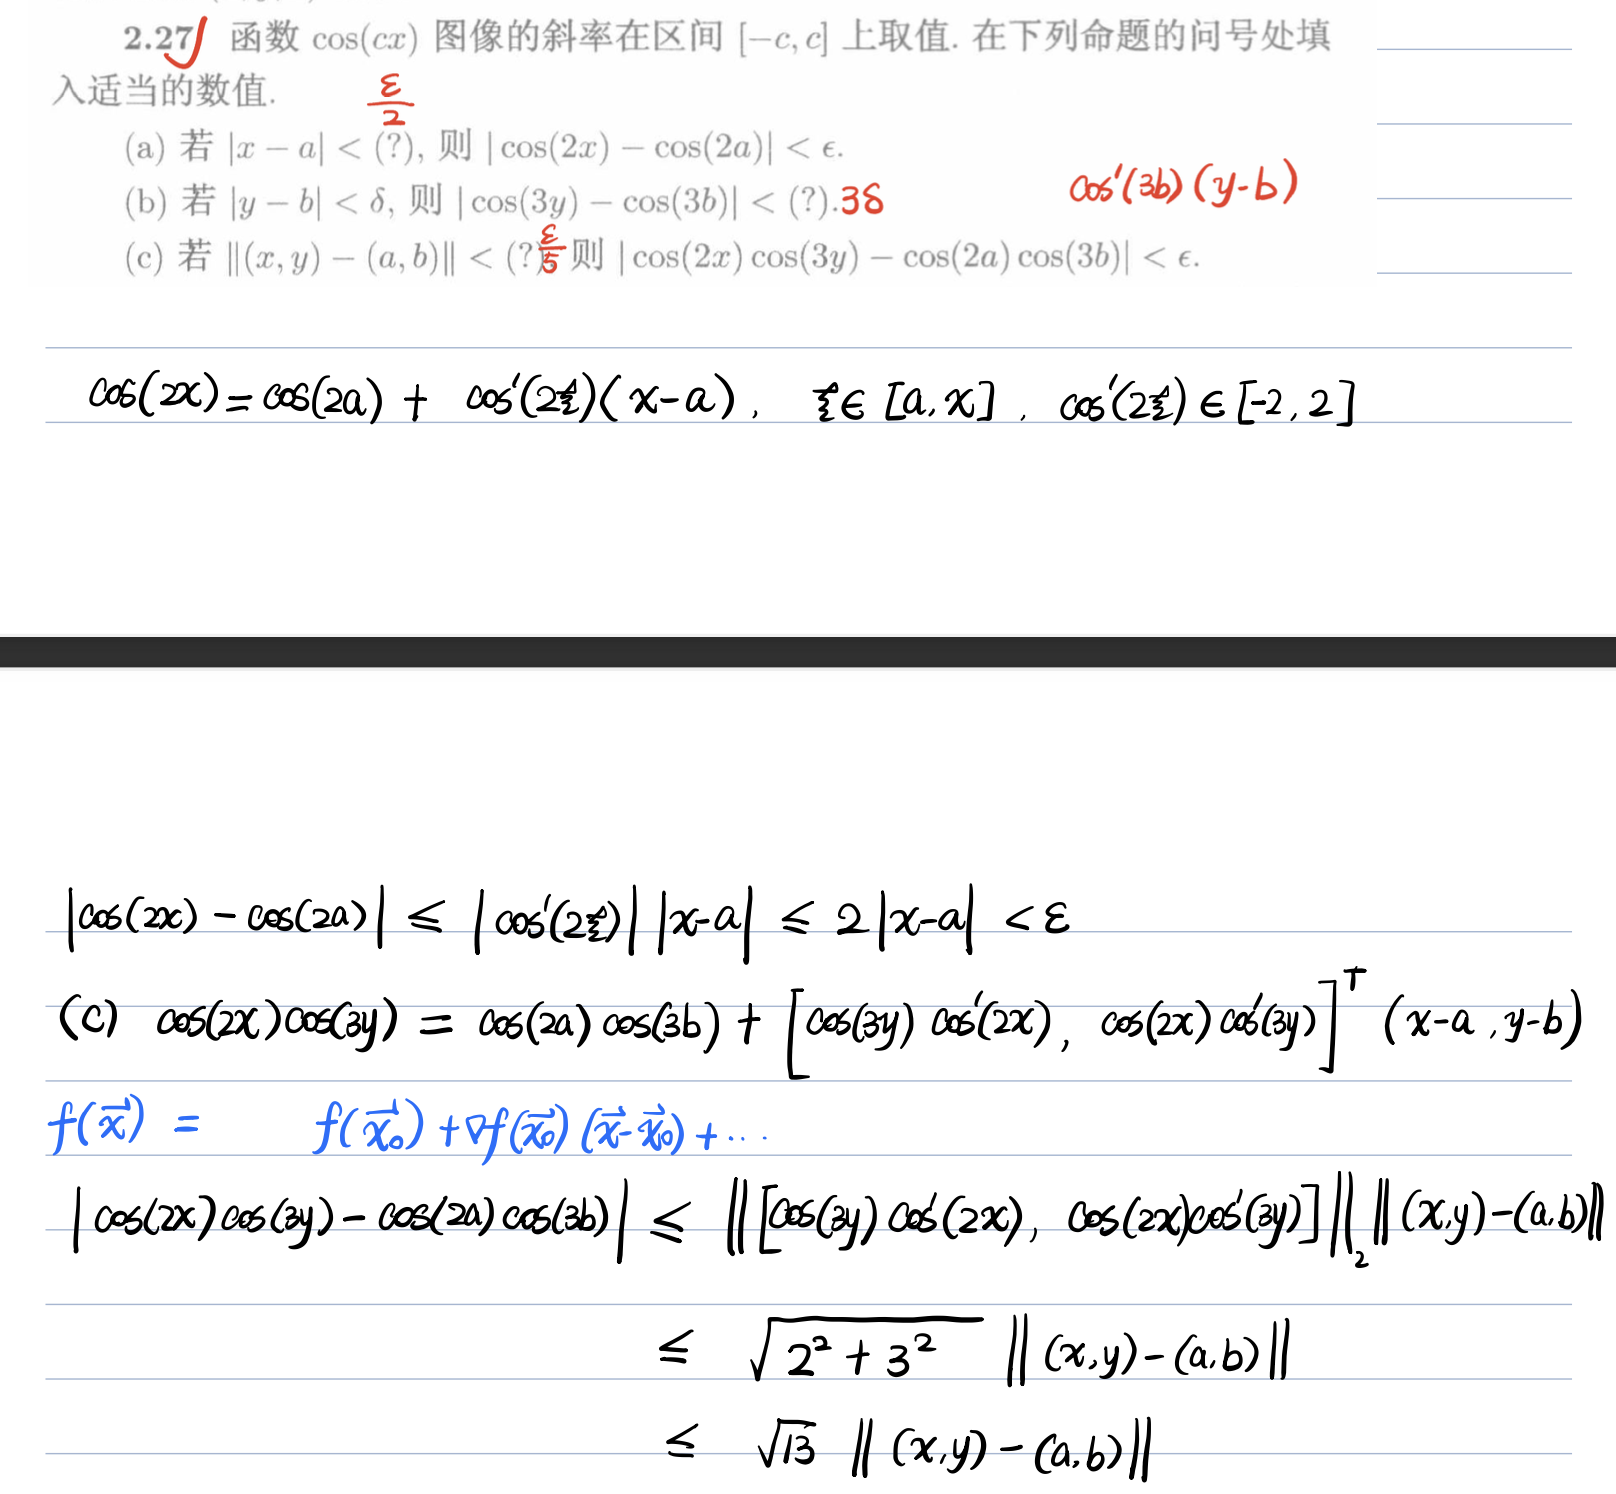 2.27 函数 cos(cx) 图像的斜率在区间 [−c, c] 上取值. 在下列命题的问号处填
入适当的数值.
ε/2
(a) 若 |x − a| < (?), 则 | cos(2x) − cos(2a)| < ϵ.
cos'(3b)(y-b)
(b) 若 |y − b| < δ, 则 | cos(3y) − cos(3b)| < (?). 3δ
(c) 若 ‖(x, y) − (a, b)‖ < (?) ε/5 则 | cos(2x) cos(3y) − cos(2a) cos(3b)| < ϵ.
cos(2x) = cos(2a) + cos'(2ξ)(x-a), ξ ∈ [a, x], cos'(2ξ) ∈ [-2, 2]
|cos(2x) - cos(2a)| ≤ |cos'(2ξ)| |x-a| ≤ 2|x-a| < ε
(c) cos(2x)cos(3y) = cos(2a)cos(3b) + [cos(3y)cos'(2x), cos(2x)cos'(3y)]ᵀ (x-a, y-b)
f(x⃗) = f(x⃗₀) + ∇f(x⃗₀)(x⃗-x⃗₀) + ...
|cos(2x)cos(3y) - cos(2a)cos(3b)| ≤ ‖[cos(3y)cos'(2x), cos(2x)cos'(3y)]‖₂ ‖(x,y)-(a,b)‖
≤ √(2² + 3²) ‖(x,y)-(a,b)‖
≤ √13 ‖(x,y)-(a,b)‖